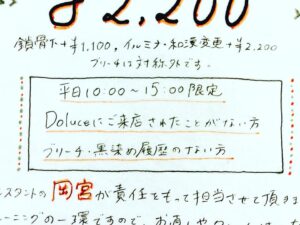 ¥2,200
鎖骨下+¥1,100, イルミナ・和漢変更+¥2,200
ブリーチは対称外です。
平日10:00〜15:00限定
Doluceにご来店されたことがない方
ブリーチ・黒染め履歴のない方
スタントの岡宮が責任をもって担当させて頂きま
ーニングの一環ですので、お直し